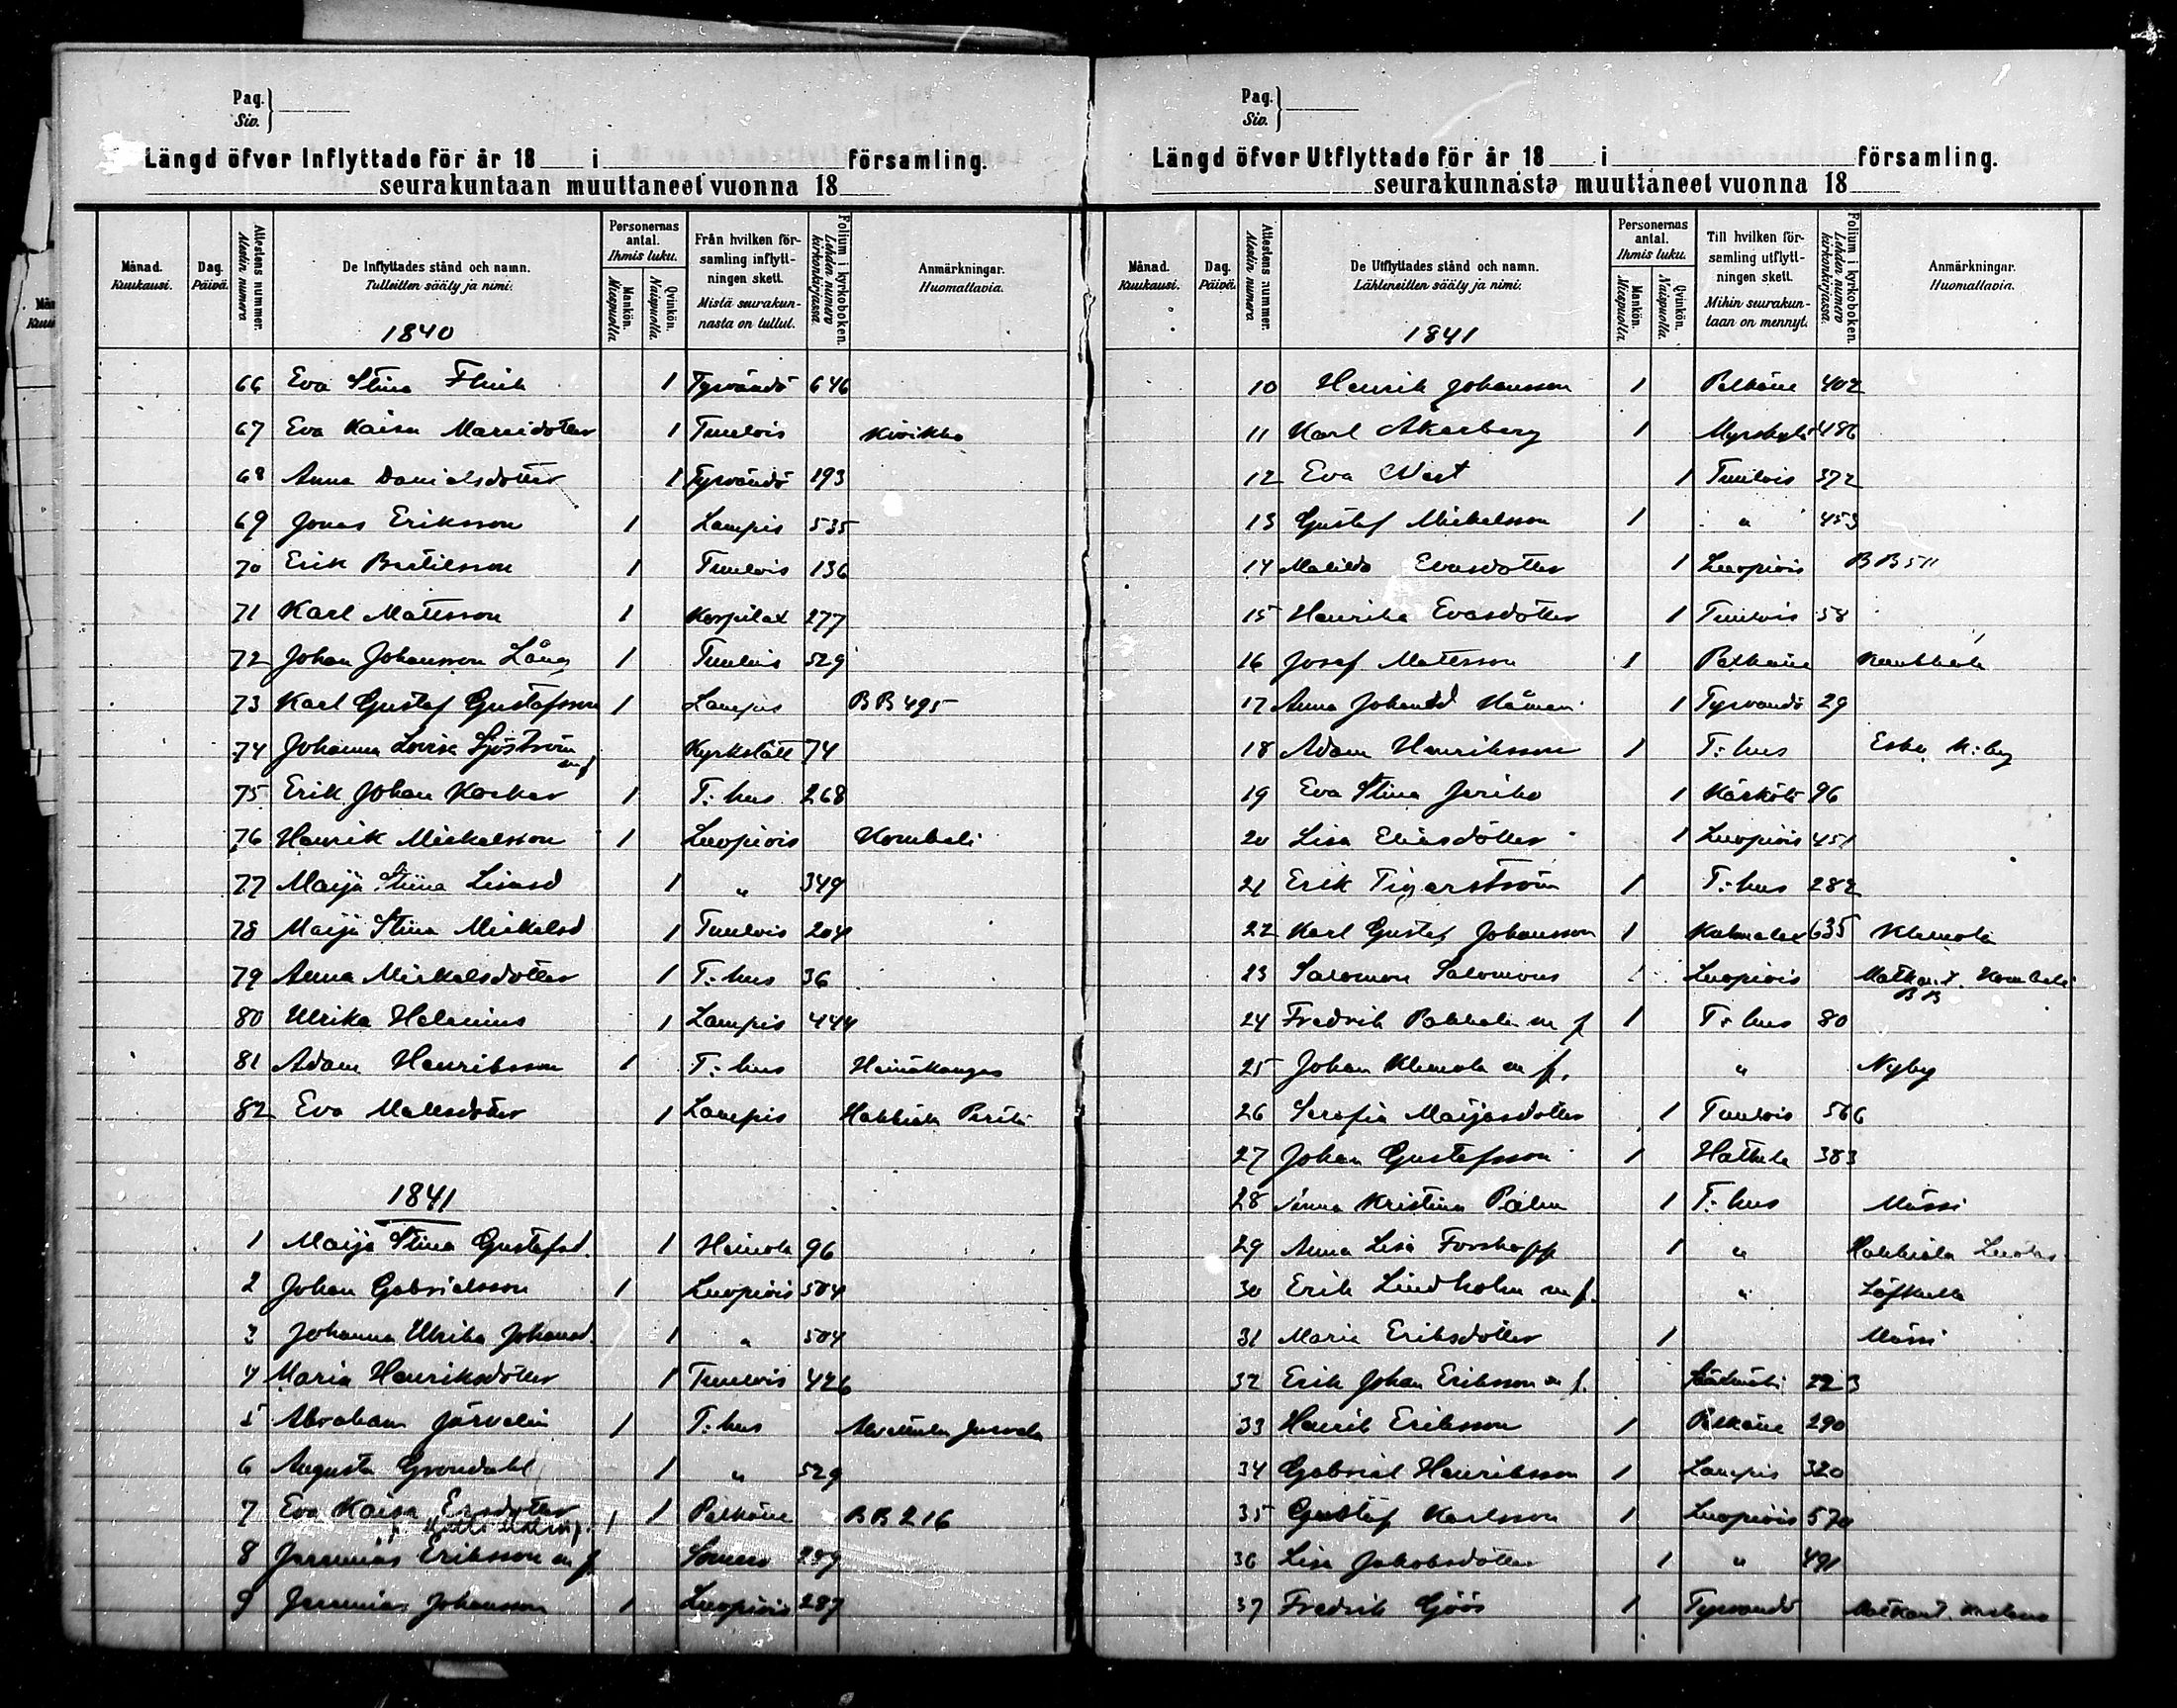 Pag.
Siv.
Längd öfver Inflyttade för år 18 i församling.
seurakuntaan muuttaneet vuonna 18
Månad. Kuukausi. Dag. Päivä. Attestens nummer. Alestin numero De Inflyttades stånd och namn. Tulleitten sääty ja nimi. Personernas antal. Ihmis luku. Mankön. Miespuolia Qvinkön. Naispuolia. Från hvilken församling inflyttningen skett. Mistä seurakunnasta on tullut. Folium i kyrkoboken. Lehden numero kirkonkirjassa. Anmärkningar. Huomattavia.
1840
66 Eva Stina Flink 1 Tyrvändö 646
67 Eva Kaisa Mariidotter 1 Tuulois Kivikko
68 Anna Danielsdotter 1 Tyrvändö 193
69 Jonas Eriksson 1 Lampis 535
70 Erik Bertilsson 1 Tuulois 136
71 Karl Mattsson 1 Korpilax 277
72 Johan Johansson Lång 1 Tuulois 529
73 Karl Gustaf Gustafsson 1 Lampis BB 495
74 Johanna Lovisa Sjöström m f Kyrkslätt 74
75 Erik Johan Kosker 1 T:hus 268
76 Henrik Mickelsson 1 Luopiois Kombeli
77 Maija Stiina Lisasd 1 " 349
78 Maija Stina Mickelsd 1 Tuulois 204
79 Anna Mickelsdotter 1 T:hus 36
80 Ulrika Helenius 1 Lampis 444
81 Adam Henriksson 1 T:hus Heinäkangas
82 Eva Mattsdotter 1 Lampis Hakkiala Perttu
1841
1 Maija Stina Gustafsd. 1 Heinola 96
2 Johan Gabrielsson 1 Luopiois 504
3 Johanna Ulrika Johansd. 1 " 504
4 Maria Henriksdotter 1 Tuulois 426
5 Abraham Järvelin 1 T:hus Alvettula
6 Augusta Grondahl 1 " 529
7 Eva Kaisa Ersdotter 1 1 Pelkäne BB 216
8 Jeremias Eriksson m f Somero 289
9 Jeremias Johansson 1 Luopiois 287
Pag.
Siv.
Längd öfver Utflyttade för år 18 i församling.
seurakunnasta muuttaneet vuonna 18
Månad. Kuukausi. Dag. Päivä. Attestens nummer. Alestin numero De Utflyttades stånd och namn. Lähteneitten sääty ja nimi. Personernas antal. Ihmis luku. Mankön. Miespuolia Qvinkön. Naispuolia. Till hvilken församling utflyttningen skett. Mihin seurakuntaan on mennyt. Folium i kyrkoboken. Lehden numero kirkonkirjassa. Anmärkningar. Huomattavia.
1841
10 Henrik Johansson 1 Pelkäne 402
11 Karl Åkerberg 1 Myrskylä 486
12 Eva West 1 Tuulois 372
13 Gustaf Mickelsson 1 " 453
14 Matilda Evasdotter 1 Luopiois BB 511
15 Henrika Evasdotter 1 Tuulois 58
16 Josef Mattsson 1 Pelkäne
17 Anna Johansd Hämen 1 Tyrvändö 29
18 Adam Henriksson 1 T:hus Esbo K:by
19 Eva Stina Jeriko 1 Kärkölä 96
20 Lisa Eliasdotter 1 Luopiois 451
21 Erik Tigerström 1 T:hus 282
22 Karl Gustaf Johansson 1 Kuhmalax 635 Klemola
23 Salomon Salomons 1 Luopiois Matkant. Kombeli BB
24 Fredrik Pakkala m f 1 T:hus 80
25 Johan Klemola m f. " Nyby
26 Serafia Maijasdotter 1 Tuulois 566
27 Johan Gustafsson 1 Hattula 383
28 Anna Kristina Palm 1 T:hus Mässi
29 Anna Lisa Forshopp 1 " Hakkiala
30 Erik Lindholm m f. " Löfkulla
31 Maria Eriksdotter 1 Mässi
32 Erik Johan Eriksson m f. Sääksmäki 223
33 Henrik Eriksson 1 Pelkäne 290
34 Gabriel Henriksson 1 Lampis 320
35 Gustaf Karlsson 1 Luopiois 570
36 Lisa Jakobsdotter 1 " 491
37 Fredrik Göös 1 Tyrvändö Matkant.